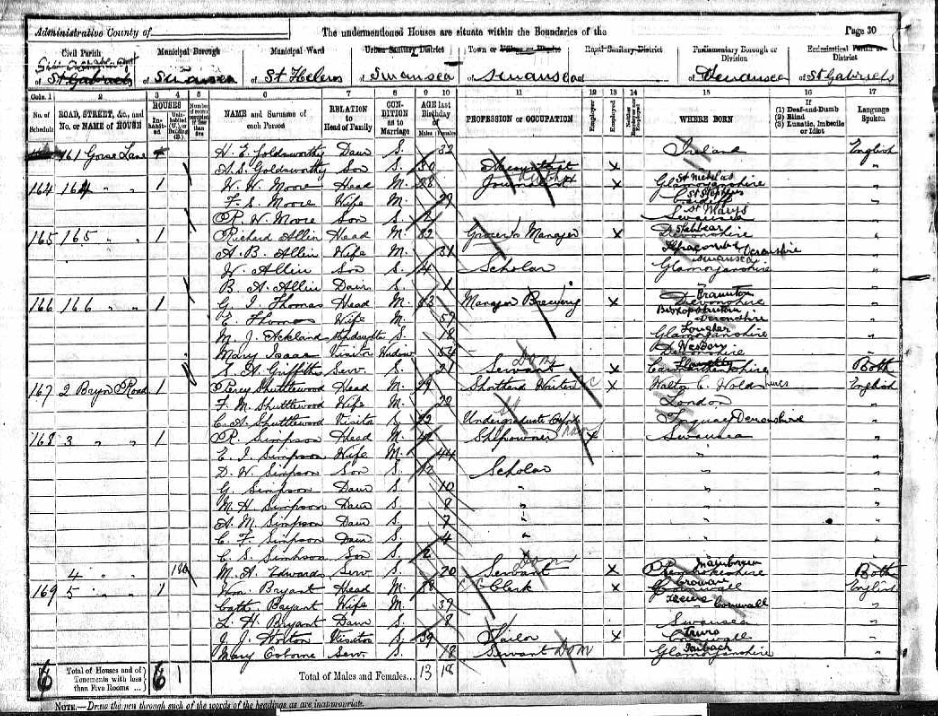 Administrative County of The undermentioned Houses are situate within the Boundaries of the Page 30
Civil Parish Municipal Borough Municipal Ward Urban Sanitary District Town or Village or Hamlet Rural Sanitary District Parliamentary Borough or Division Ecclesiastical Parish or District
of St Gabriels of Swansea of St Helens of Swansea of Swansea of of Swansea of St Gabriels
Cols. 1 2 3 4 5 6 7 8 9 10 11 12 13 14 15 16 17
No. of Schedule ROAD, STREET, &c., and No. or NAME of HOUSE HOUSES NAME and Surname of each Person RELATION to Head of Family CONDITION as to Marriage AGE last Birthday of PROFESSION or OCCUPATION Employer Employed WHERE BORN If (1) Deaf-and-Dumb (2) Blind (3) Lunatic, Imbecile or Idiot Language Spoken
161 Gorse Lane H. E. Goldsworthy Daur S. 32 Ireland English
A. S. Goldsworthy Son S. 30 x "
164 164 " " 1 W. H. Moore Head M. 28 Journalist x Glamorganshire St Nicholas "
F. S. Moore Wife M. 29 Cardiff St Stephens "
R. H. Moore Son S. 2 Swansea St Marys "
165 165 " " 1 Richard Allin Head M. 32 Grocer's Manager x Devonshire "
A. B. Allin Wife M. 31 Ilfracombe Devonshire "
W. Allin Son S. 4 Scholar Swansea Glamorganshire "
B. A. Allin Daur S. 1 " "
166 166 " " 1 G. I. Thomas Head M. 63 Manager Brewing x Braunton Devonshire "
E. Thomas Wife M. 59 Devonshire "
M. J. Ackland S. 18 Loughor Glamorganshire "
Mary Isaac Visitor Widow 54 Devonshire "
S. A. Griffiths Serv. S. 21 Servant Dom x Llanelly Carmarthenshire Both
167 2 Bryn Road 1 Percy Shuttlewood Head M. 29 Shorthand Writer x English
F. M. Shuttlewood Wife M. 20 London "
C. A. Shuttlewood Visitor S. 23 Undergraduate Torquay Devonshire "
168 3 " " 1 R. Simpson Head M. 42 Shipowner x Swansea "
E. I. Simpson Wife M. 44 " "
D. W. Simpson Son S. 12 Scholar " "
G. Simpson Daur S. 10 " " "
M. H. Simpson Daur S. 8 " " "
A. M. Simpson Daur S. 7 " " "
C. F. Simpson Daur S. 4 " " "
C. S. Simpson Son S. 2 " "
M. A. Edwards Serv. S. 20 Servant Dom x Pembrokeshire Both
4 " "
169 5 " " 1 Wm. Bryant Head M. Clerk x Cornwall English
Cath. Bryant Wife M. 39 Cornwall "
L. H. Bryant Daur S. 8 Swansea "
J. J. Visitor S. 39 Sailor x Truro Cornwall "
Mary Osborne Serv. S. 18 Servant Dom Taibach Glamorganshire "
6 Total of Houses and of Tenements with less than Five Rooms ... 6 1 Total of Males and Females... 13 18
NOTE.—Draw the pen through such of the words of the headings as are inappropriate.